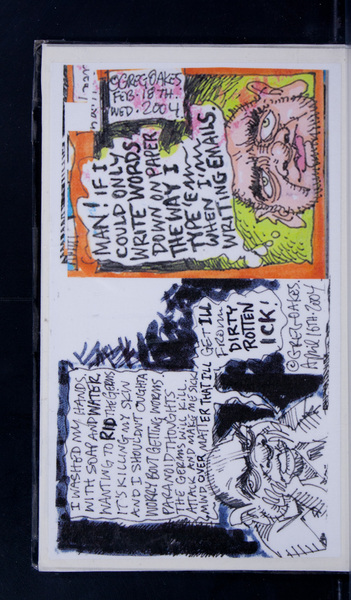 ©GREG OAKES.
FEB. 18TH.
WED. 2004.
MAN! IF I
COULD ONLY
WRITE WORDS
DOWN ON PAPER
THE WAY I
TYPE 'EM
WHEN I'M
WRITING EMAILS
I WASHED MY HANDS
WITH SOAP AND WATER
WANTING TO RID THE GERMS
IT'S KILLING MY SKIN
AND I SHOULDN'T OUGHTA
WORRY 'BOUT GETTING WORMS
PARANOID THOUGHTS
THE GERMS WILL
ATTACK AND MAKE ME SICK
MIND OVER MATTER THAT I'LL GET ILL
FROM
DIRTY
ROTTEN
ICK!
©GREG OAKES.
April 16TH 2004